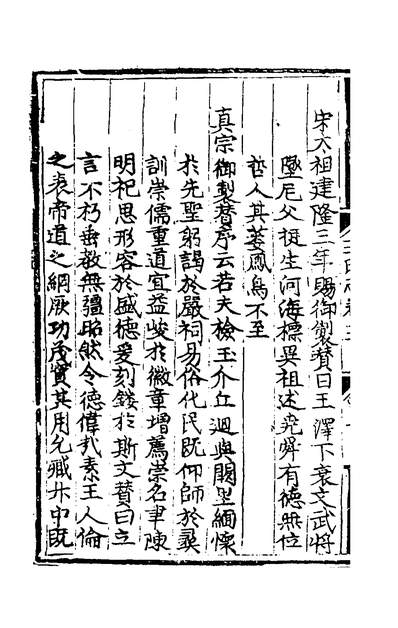 宋太祖建隆三年賜御製賛曰王澤下衰文武將
墜尼父挺生河海標異祖述堯舜有德無位
哲人其萎鳳鳥不至
真宗御製賛序云若夫檢玉介丘廻輿闕里緬懷
於先聖躬謁於嚴祠易俗化民既仰師於彛
訓崇儒重道宜益峻於徽章增薦崇名聿陳
明祀思形容於盛德爰刻鏤於斯文賛曰立
言不朽垂教無疆昭然令德偉哉素王人倫
之表帝道之綱厥功茂實其用允臧升中既